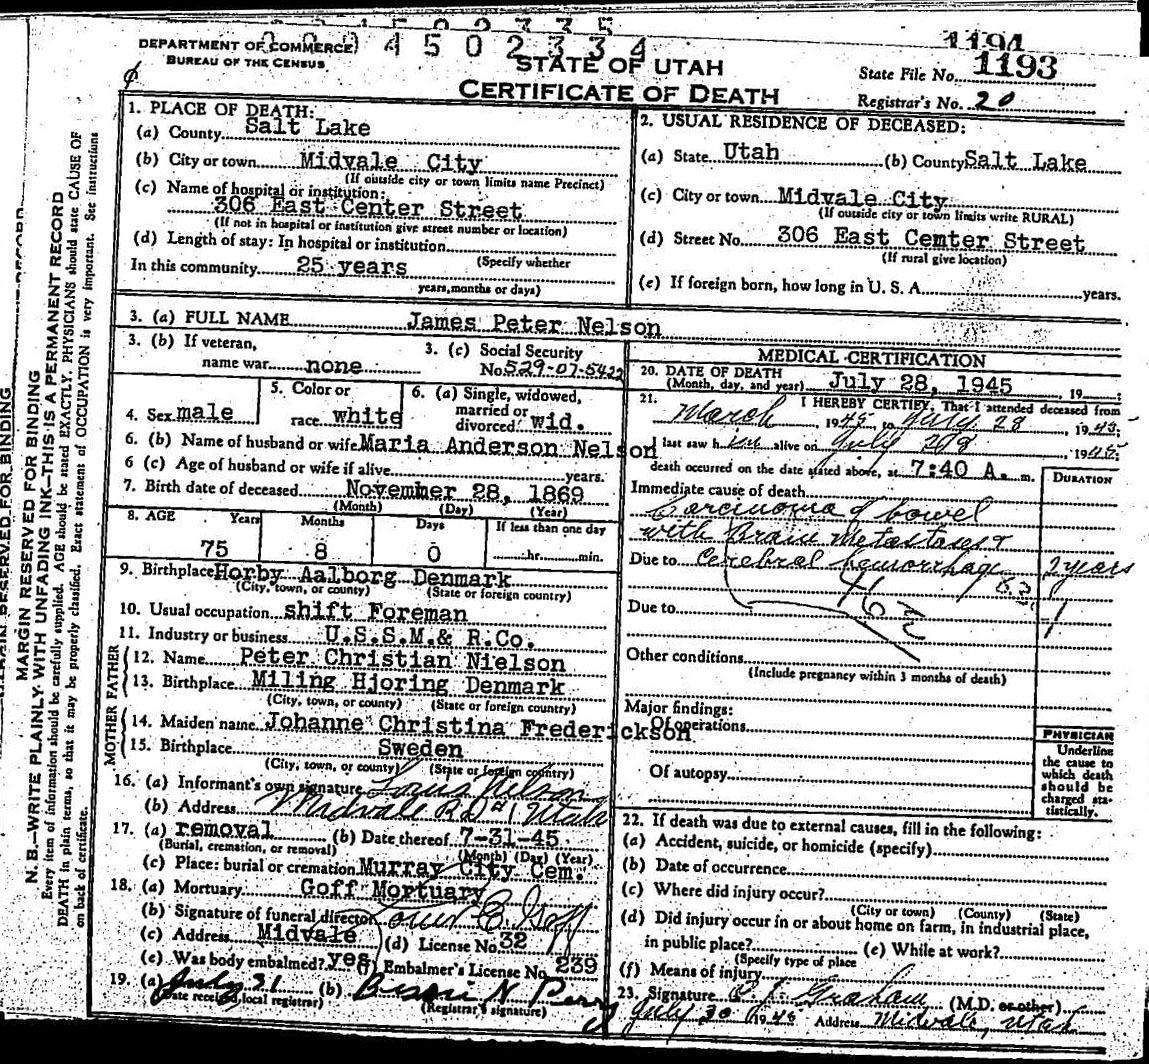 0004502335
0004502334
1194
DEPARTMENT OF COMMERCE
BUREAU OF THE CENSUS
STATE OF UTAH
CERTIFICATE OF DEATH
State File No. 1193
Registrar's No. 20
1. PLACE OF DEATH:
(a) County Salt Lake
(b) City or town Midvale City
(If outside city or town limits name Precinct)
(c) Name of hospital or institution:
306 East Center Street
(If not in hospital or institution give street number or location)
(d) Length of stay: In hospital or institution
(Specify whether
In this community 25 years
years, months or days)
2. USUAL RESIDENCE OF DECEASED:
(a) State Utah (b) County Salt Lake
(c) City or town Midvale City
(If outside city or town limits write RURAL)
(d) Street No. 306 East Cemter Street
(If rural give location)
(e) If foreign born, how long in U. S. A. years.
3. (a) FULL NAME James Peter Nelson
3. (b) If veteran,
name war none
3. (c) Social Security
No. 529-07-5422
4. Sex male
5. Color or
race white
6. (a) Single, widowed,
married or
divorced wid.
6. (b) Name of husband or wife Maria Anderson Nelson
6 (c) Age of husband or wife if alive years.
7. Birth date of deceased November 28, 1869
(Month) (Day) (Year)
8. AGE Years Months Days If less than one day
75 8 0 hr. min.
9. Birthplace Horby Aalborg Denmark
(City, town, or county) (State or foreign country)
10. Usual occupation shift Foreman
11. Industry or business U.S.S.M.& R.Co.
FATHER
12. Name Peter Christian Nielson
13. Birthplace Miling Hjoring Denmark
(City, town, or county) (State or foreign country)
MOTHER
14. Maiden name Johanne Christina Frederickson
15. Birthplace Sweden
(City, town, or county) (State or foreign country)
16. (a) Informant's own signature Louis Nelson
(b) Address Midvale RD #1 Utah
17. (a) removal (b) Date thereof 7-31-45
(Burial, cremation, or removal) (Month) (Day) (Year)
(c) Place: burial or cremation Murray City Cem.
18. (a) Mortuary Goff Mortuary
(b) Signature of funeral director Goff
(c) Address Midvale (d) License No. 32
(e) Was body embalmed? yes (f) Embalmer's License No. 239
19. (a) July 31 (b) N. Perry
(Date received local registrar) (Registrar's signature)
MEDICAL CERTIFICATION
20. DATE OF DEATH
(Month, day, and year) July 28, 1945 , 19
21. I HEREBY CERTIFY, That I attended deceased from
March , 1945 to July 28 , 1945;
I last saw him alive on July 28 , 1945;
death occurred on the date stated above, at 7:40 A. m.
DURATION
Immediate cause of death
Carcinoma of bowel
with Brain Metastases &
Due to Cerebral hemorrhage 2 years
Due to 1
46
Other conditions
(Include pregnancy within 3 months of death)
Major findings:
Of operations
Of autopsy
PHYSICIAN
Underline
the cause to
which death
should be
charged sta-
tistically.
22. If death was due to external causes, fill in the following:
(a) Accident, suicide, or homicide (specify)
(b) Date of occurrence
(c) Where did injury occur?
(City or town) (County) (State)
(d) Did injury occur in or about home on farm, in industrial place,
in public place? (e) While at work?
(Specify type of place
(f) Means of injury
23. Signature Graham (M.D. or other)
July 30 1945 Address Midvale, Utah
MARGIN RESERVED FOR BINDING
N. B.—WRITE PLAINLY WITH UNFADING INK—THIS IS A PERMANENT RECORD
Every item of information should be carefully supplied. AGE should be stated EXACTLY. PHYSICIANS should state CAUSE OF
DEATH in plain terms, so that it may be properly classified. Exact statement of OCCUPATION is very important. See instructions
on back of certificate.